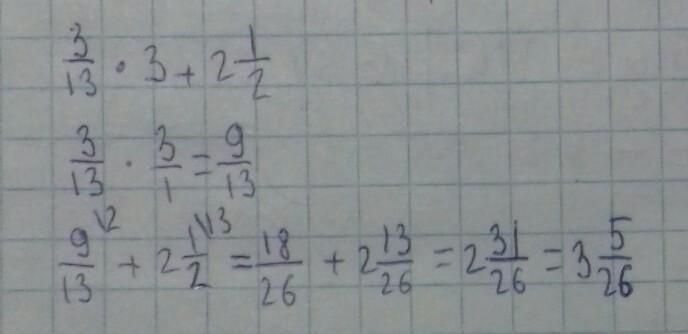 3/13 · 3 + 2 1/2
3/13 · 3/1 = 9/13
9/13 \2 + 2 1/2 \13 = 18/26 + 2 13/26 = 2 31/26 = 3 5/26